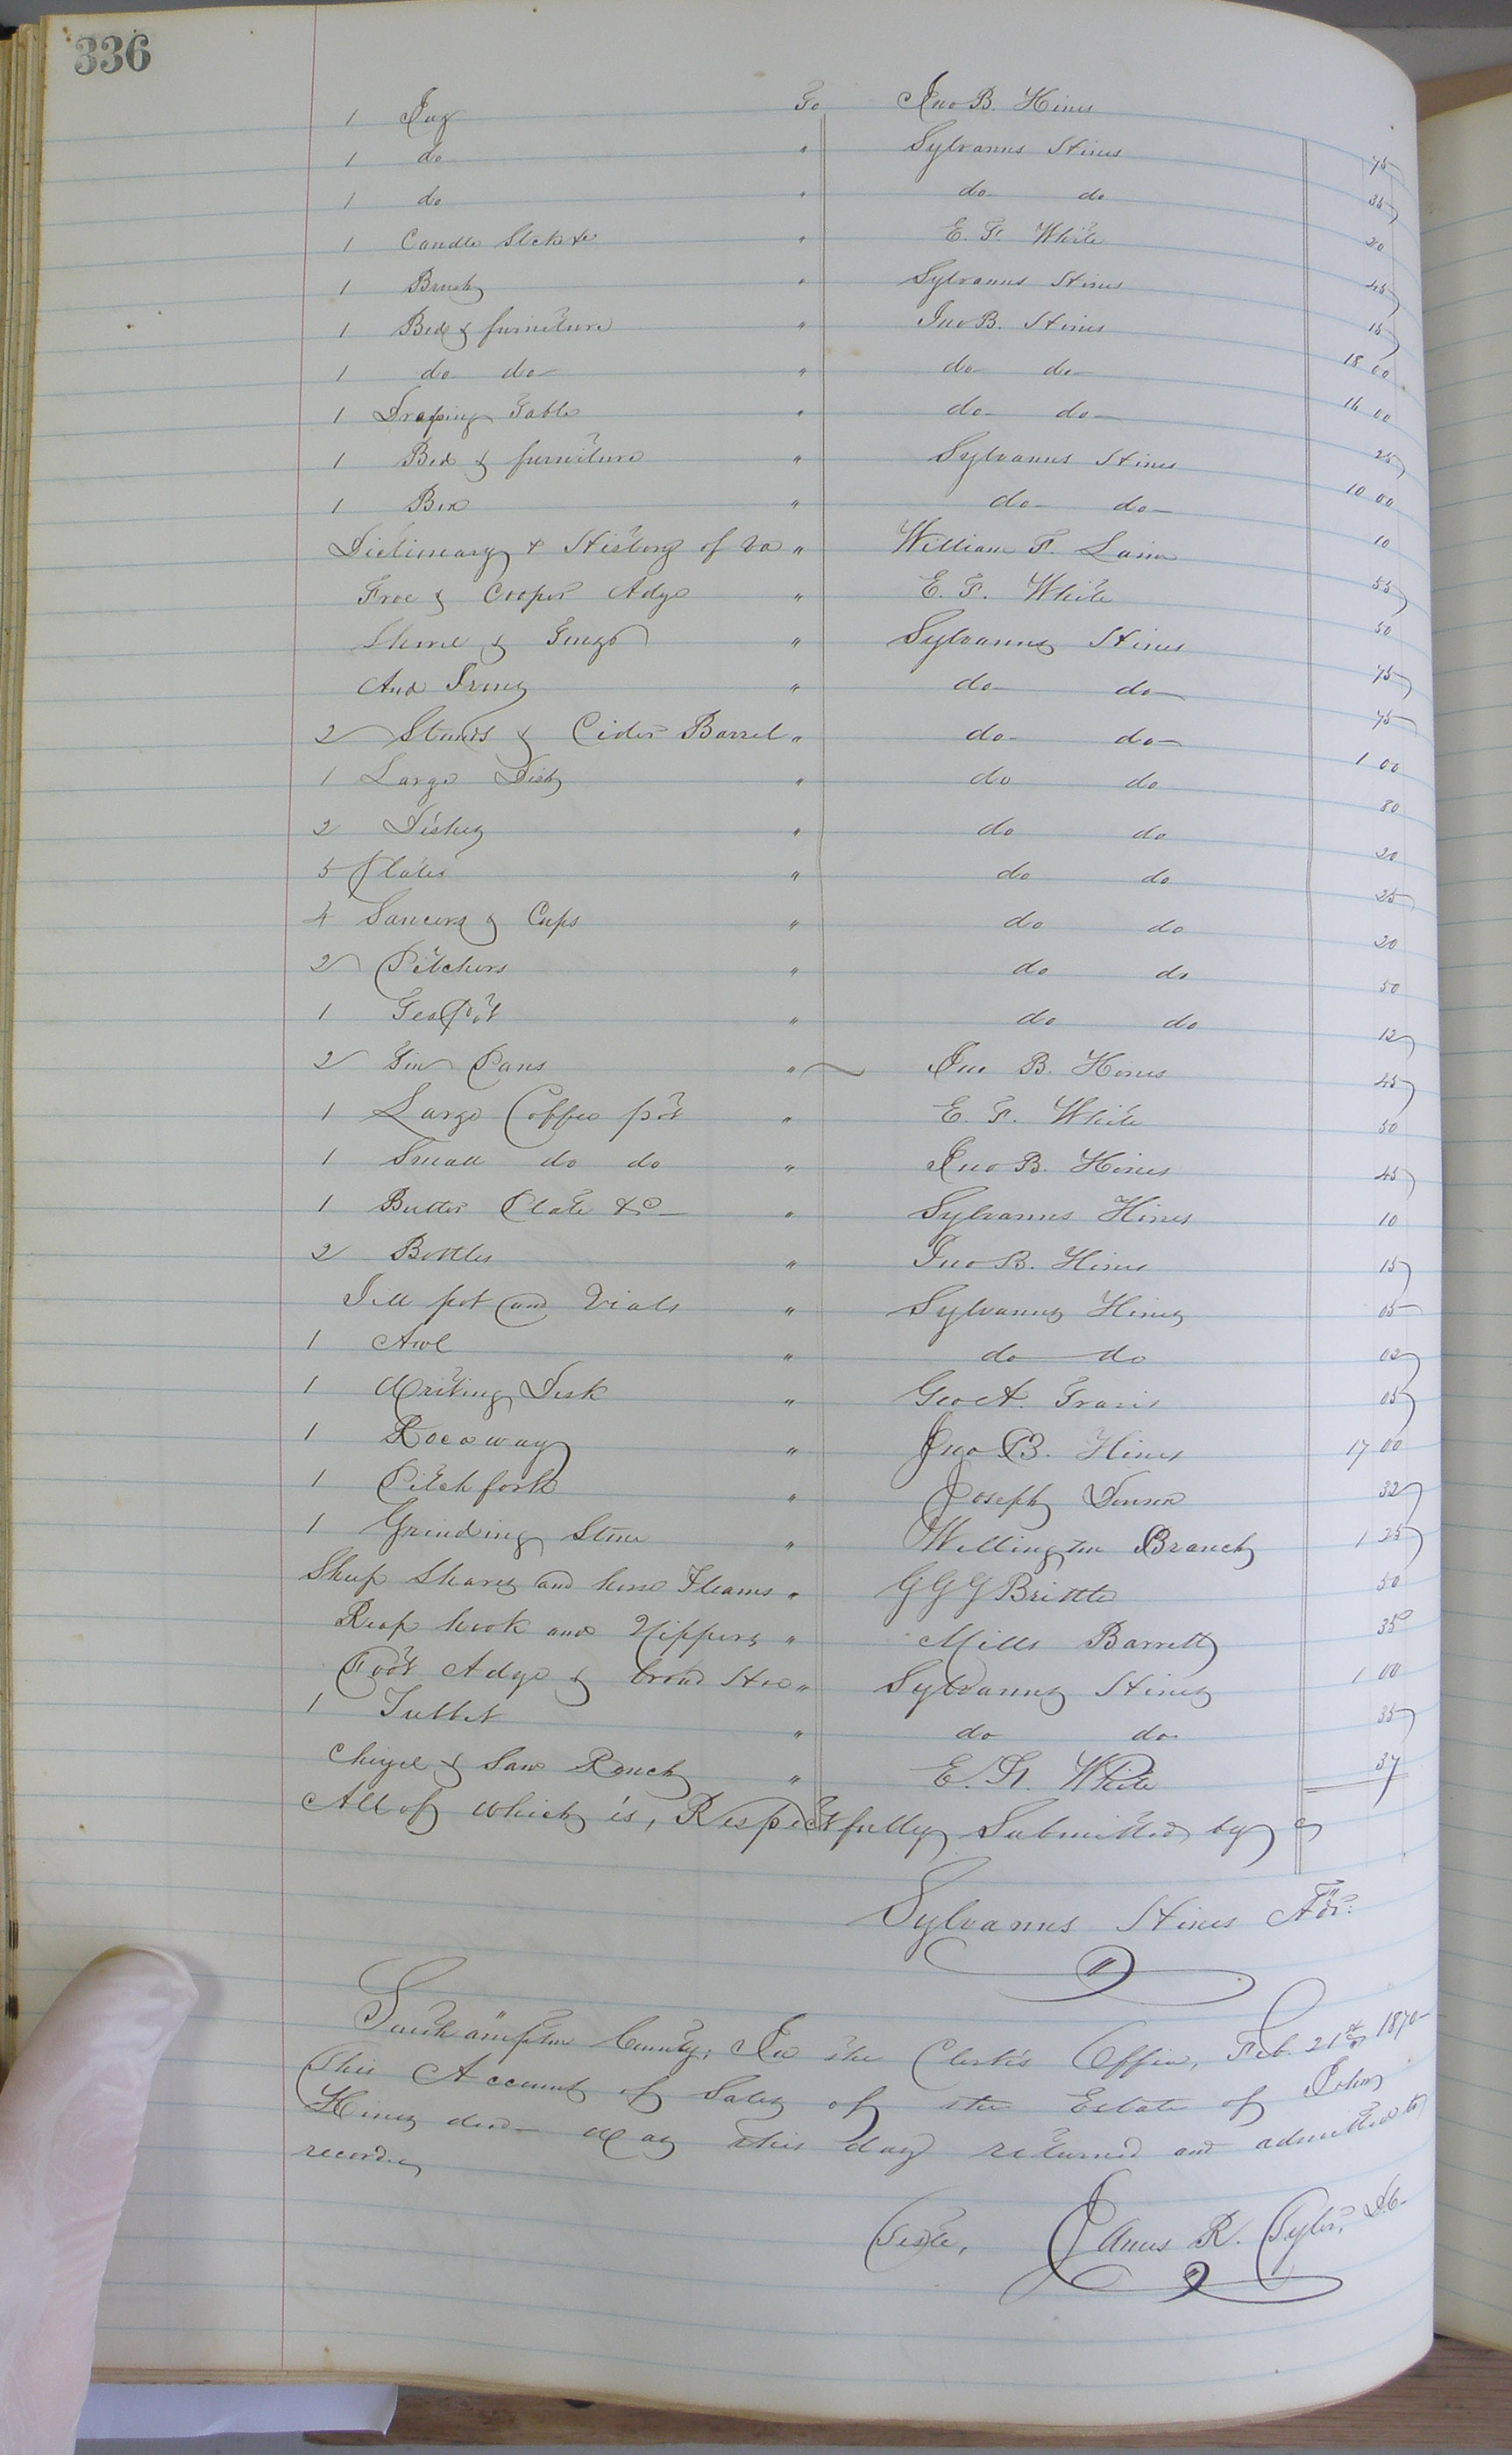 336
1 Jug To Jno B. Hines 75
1 do " Sylvanus Hines 35
1 do " do do 20
1 Candle Stick &c " E. F. White 45
1 Brush " Sylvanus Hines 15
1 Bed & furniture " Jno B. Hines 18 00
1 do do " do do 16 00
1 Drafsing Table " do do 25
1 Bed & furniture " Sylvanus Hines 10 00
1 Box " do do 10
Dictionary & History of Va " William F. Lain 55
Froe & Cooper Adze " E. F. White 50
Shovel & Tongs " Sylvanus Hines 75
And Irons " do do 75
2 Stands & Cider Barrel " do do 1 00
1 Large Dish " do do 80
2 Dishes " do do 20
5 Plates " do do 25
4 Saucers & Cups " do do 20
2 Pitchers " do do 50
1 Tea Pot " do do 12
2 Tin Pans " Jno B. Hines 45
1 Large Coffee pot " E. F. White 50
1 Small do do " Jno B. Hines 45
1 Butter Plate &c " Sylvanus Hines 10
2 Bottles " Jno B. Hines 15
pot and Vials " Sylvanus Hines 05
1 Awl " do do 02
1 Writing Desk " Geo A. Travis 05
1 Rocaway " Jno B. Hines 17 00
1 Pitch fork " Joseph 32
1 Grinding Stone " Wellington Branch 1 25
Sheep Shares and horse Fleams " G G G Brittle 50
Reap hook and Nippers " Mills Barrett 35
Foot Adze & broad Hoe " Sylvanus Hines 1 00
1 " do do 35
Chizel & Saw " E. F. White 37
All of which is, Respectfully Submitted by
Sylvanus Hines Adr.
Southampton County; In the Clerk's Office, Feb. 21st 1870
This Account of Sales of the Estate of John
Hines decd Was this day returned and admitted to
record.
Teste, James R. Tyler, D.C.